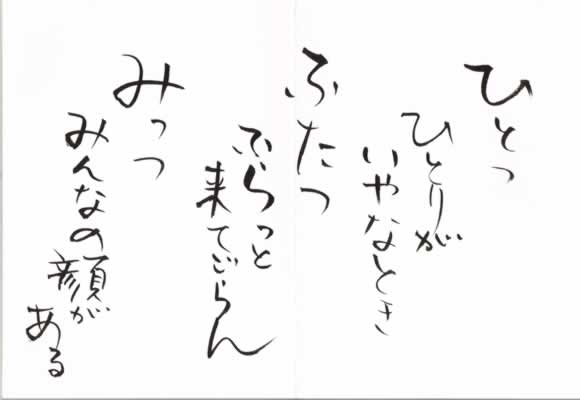 ひとつ
ひとりが
いやなとき
ふたつ
ふらっと
来てごらん
みっつ
みんなの
顔が
ある